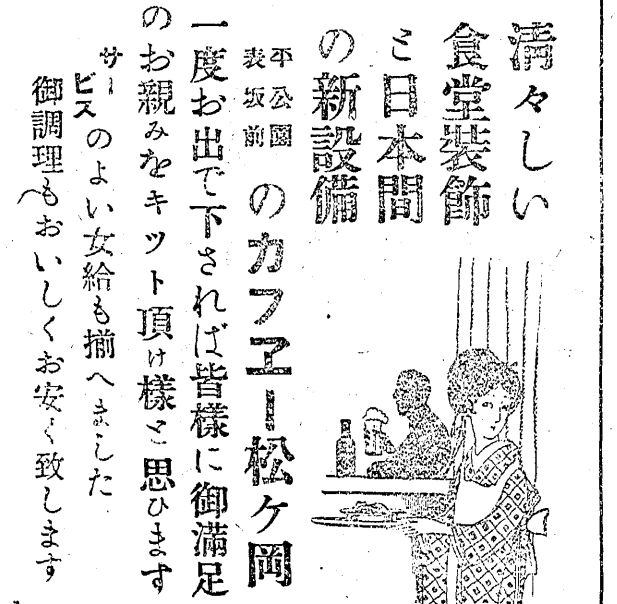 清々しい
食堂装飾
と日本間
の新設備
平公園
表坂前
のカフヱー松ケ岡
一度お出で下されば皆様に御満足
のお親みをキット頂け様と思ひます
サービスのよい女給も揃へました
御調理もおいしくお安く致します